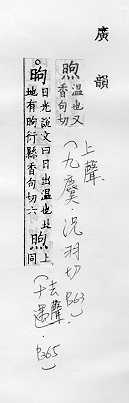 廣韻
煦
溫也又
香句切
上聲
(九麌 況羽切 P263)
○昫
日光說文曰日出溫也北
地有昫衍縣香句切六
煦
上同
(去聲
十遇 . P365)